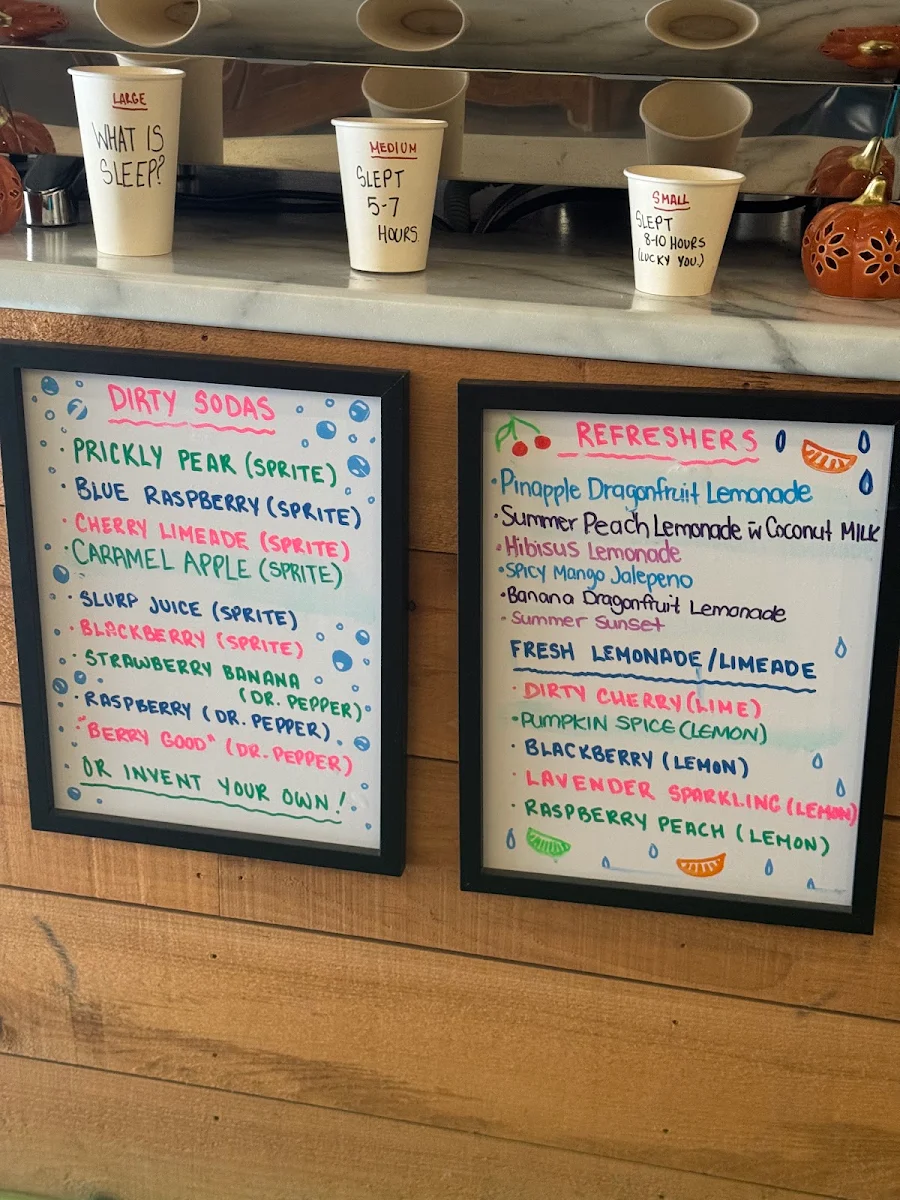 LARGE
WHAT IS
SLEEP?
MEDIUM
SLEPT
5-7
HOURS.
SMALL
SLEPT
8-10 HOURS
(LUCKY YOU.)
DIRTY SODAS
· PRICKLY PEAR (SPRITE)
· BLUE RASPBERRY (SPRITE)
· CHERRY LIMEADE (SPRITE)
· CARAMEL APPLE (SPRITE)
· SLURP JUICE (SPRITE)
· BLACKBERRY (SPRITE)
· STRAWBERRY BANANA
(DR. PEPPER)
· RASPBERRY (DR. PEPPER)
· "BERRY GOOD" (DR. PEPPER)
· OR INVENT YOUR OWN!
REFRESHERS
· Pinapple Dragonfruit Lemonade
· Summer Peach Lemonade w Coconut MILK
· Hibisus Lemonade
· SPICY Mango Jalepeno
· Banana Dragonfruit Lemonade
· Summer Sunset
FRESH LEMONADE/LIMEADE
· DIRTY CHERRY (LIME)
· PUMPKIN SPICE (LEMON)
· BLACKBERRY (LEMON)
· LAVENDER SPARKLING (LEMON)
· RASPBERRY PEACH (LEMON)